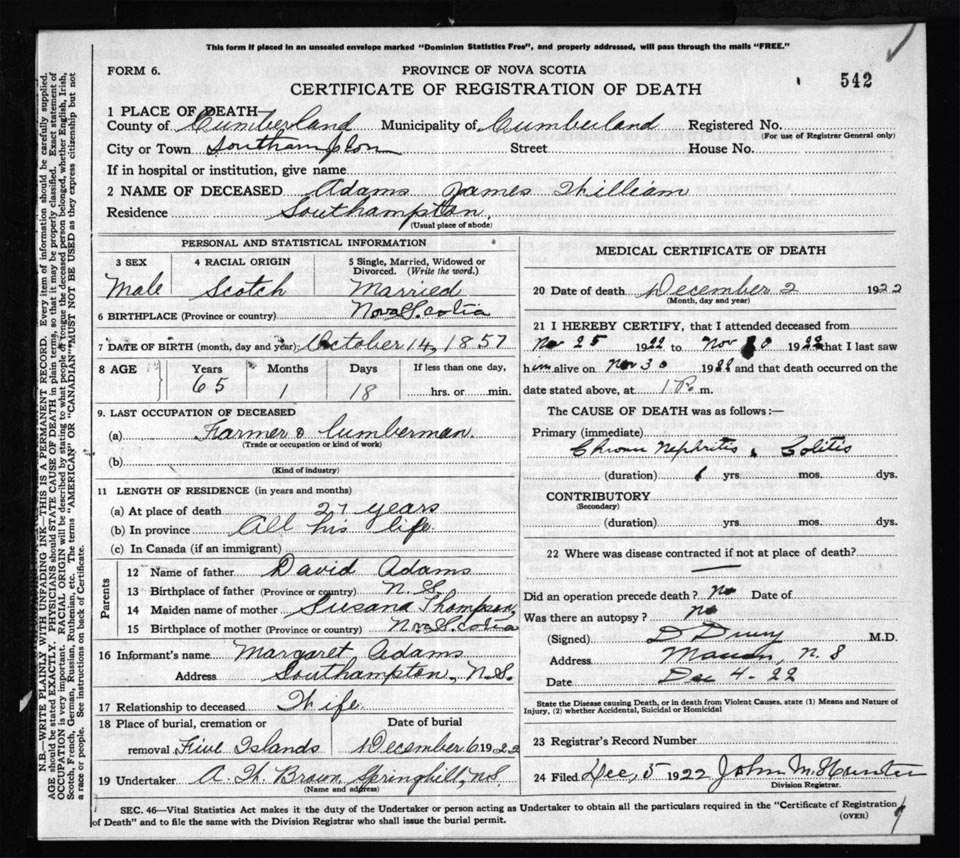 This form if placed in an unsealed envelope marked "Dominion Statistics Free", and properly addressed, will pass through the mails "FREE."
FORM 6.
PROVINCE OF NOVA SCOTIA
CERTIFICATE OF REGISTRATION OF DEATH
542
1 PLACE OF DEATH—
County of Cumberland Municipality of Cumberland Registered No.
(For use of Registrar General only)
City or Town Southampton Street House No.
If in hospital or institution, give name
2 NAME OF DECEASED Adams James William
Residence Southampton,
(Usual place of abode)
PERSONAL AND STATISTICAL INFORMATION
3 SEX Male
4 RACIAL ORIGIN Scotch
5 Single, Married, Widowed or Divorced. (Write the word.) Married
6 BIRTHPLACE (Province or country) Nova Scotia
7 DATE OF BIRTH (month, day and year) October 14, 1857
8 AGE Years Months Days If less than one day,
65 1 18 hrs. or min.
9. LAST OCCUPATION OF DECEASED
(a) Farmer & Lumberman.
(Trade or occupation or kind of work)
(b)
(Kind of industry)
11 LENGTH OF RESIDENCE (in years and months)
(a) At place of death 27 years
(b) In province All his life
(c) In Canada (if an immigrant)
Parents
12 Name of father David Adams
13 Birthplace of father (Province or country) N. S.
14 Maiden name of mother Susana Thompson,
15 Birthplace of mother (Province or country) Nova Scotia
16 Informant's name Margaret Adams
Address Southampton, N.S.
17 Relationship to deceased Wife
18 Place of burial, cremation or removal Five Islands
Date of burial December 6 1922
19 Undertaker A. W. Brown, Springhill, N.S.
(Name and address)
MEDICAL CERTIFICATE OF DEATH
20 Date of death December 2 1922
(Month, day and year)
21 I HEREBY CERTIFY, that I attended deceased from
Nov 25 1922 to Nov 30 1922 that I last saw
him alive on Nov 30 1922 and that death occurred on the
date stated above, at 1 P. m.
The CAUSE OF DEATH was as follows :—
Primary (immediate)
Chronic Nephritis & Colitis
(duration) yrs. mos. dys.
CONTRIBUTORY
(Secondary)
(duration) yrs. mos. dys.
22 Where was disease contracted if not at place of death?
Did an operation precede death? No Date of
Was there an autopsy? no
(Signed) D Drury M.D.
Address N. S
Date Dec 4-22
State the Disease causing Death, or in death from Violent Causes, state (1) Means and Nature of Injury, (2) whether Accidental, Suicidal or Homicidal
23 Registrar's Record Number
24 Filed Dec, 5 1922 John M. Hunter
Division Registrar.
SEC. 46—Vital Statistics Act makes it the duty of the Undertaker or person acting as Undertaker to obtain all the particulars required in the "Certificate of Registration
of Death" and to file the same with the Division Registrar who shall issue the burial permit.
(OVER)
N.B.—WRITE PLAINLY WITH UNFADING INK—THIS IS A PERMANENT RECORD. Every item of information should be carefully supplied.
AGE should be stated EXACTLY. PHYSICIANS should STATE CAUSE OF DEATH in plain terms, so that it may be properly classified. Exact statement of
OCCUPATION is very important. RACIAL ORIGIN will be described by stating to what people or tongue the deceased person belonged, whether English, Irish,
Scotch, French, German, Russian, Ruthenian, etc. The terms "AMERICAN" OR "CANADIAN" MUST NOT BE USED as they express citizenship but not
a race or people. See instructions on back of Certificate.